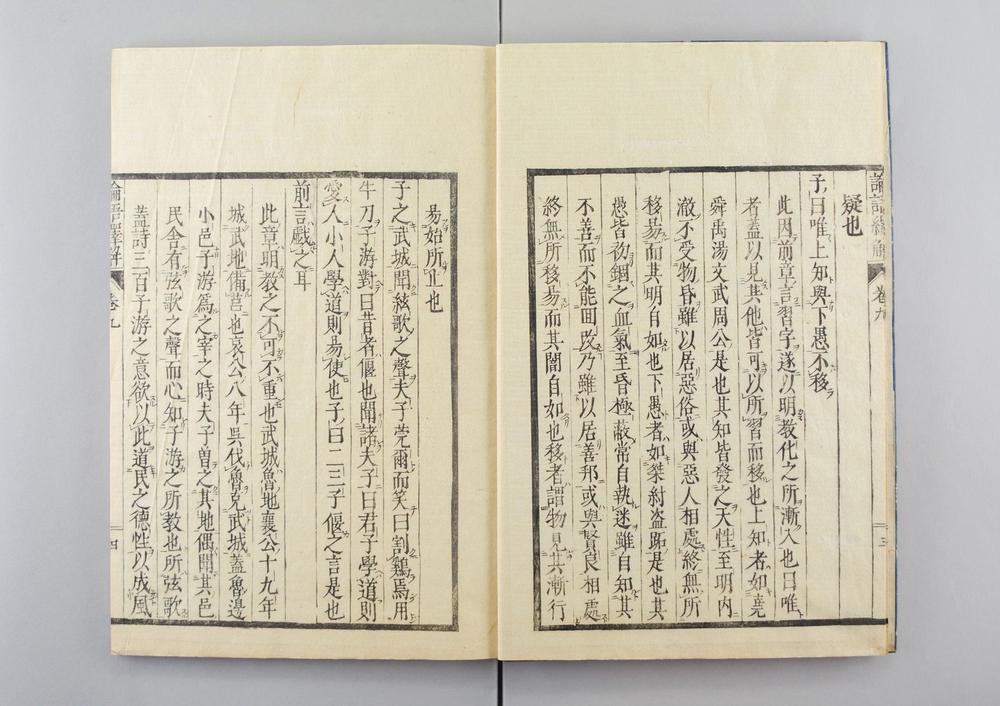 論語繹解 卷九 三
疑也
子曰唯上知與下愚不移
此因前章言習字遂以明教化之所漸入也曰唯
者蓋以見其他皆可以所習而移也上知者如堯
舜禹湯文武周公是也其知皆發之天性至明内
澈不受物昏雖以居惡俗或與惡人相處終無所
移易而其明自如也下愚者如桀紂盗跖是也其
愚皆初錮之血氣至昏極蔽常自執迷雖自知其
不善而不能回改乃雖以居善邦或與賢良相處
終無所移易而其闇自如也移者謂物見其漸行
易始所止也
子之武城聞絃歌之聲夫子莞爾而笑曰割鷄焉用
牛刀子游對曰昔者偃也聞諸夫子曰君子學道則
愛人小人學道則易使也子曰二三子偃之言是也
前言戲之耳
此章明教之不可不重也武城魯地襄公十九年
城武地備莒也哀公八年呉伐魯克武城蓋魯邊
小邑子游爲之宰之時夫子曽之其地偶聞其邑
民舎有弦歌之聲而心知子游之所教也所弦歌
蓋詩三百子游之意欲以此道民之德性以成風
論語繹解 卷九 四